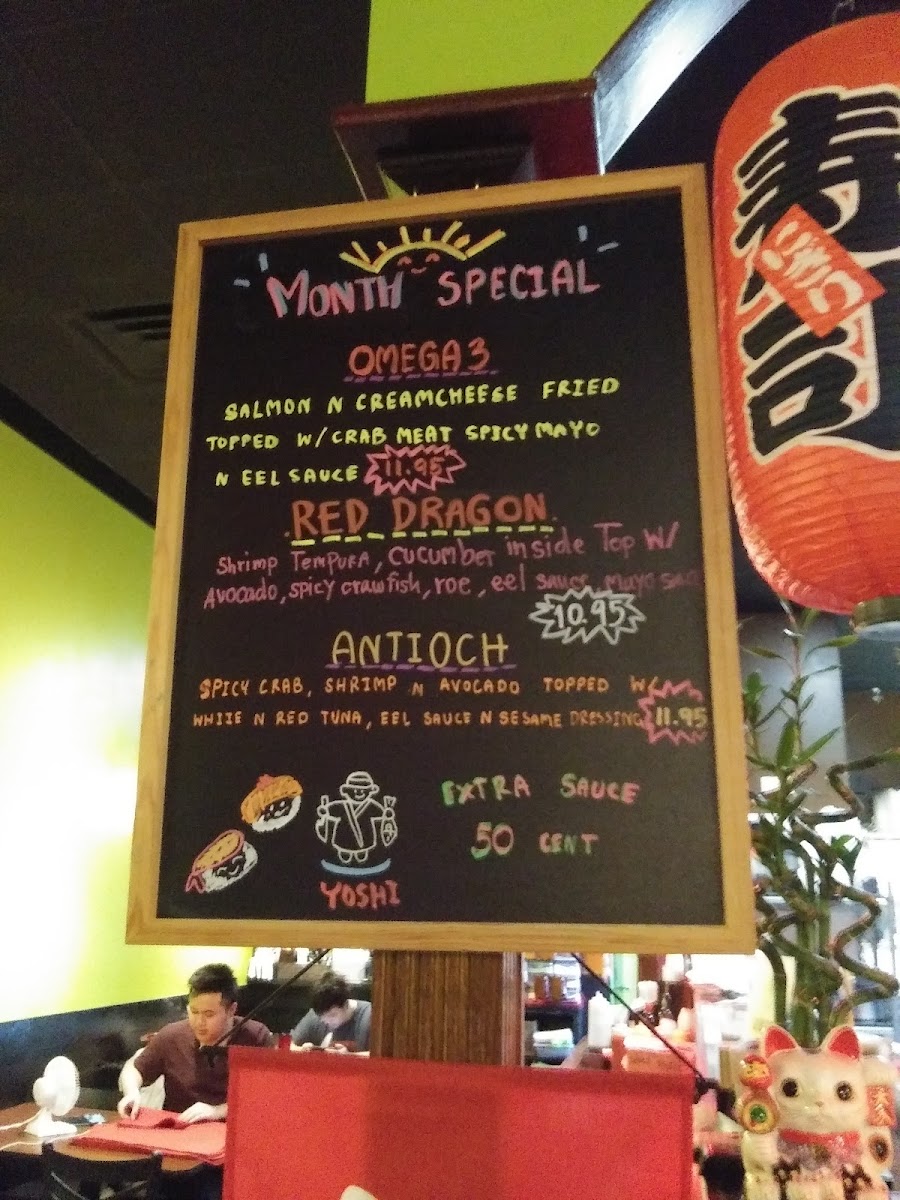 MONTH SPECIAL
OMEGA 3
SALMON N CREAMCHEESE FRIED
TOPPED W/ CRAB MEAT SPICY MAYO
N EEL SAUCE 11.95
RED DRAGON
Shrimp TEMPURA, CUCUMBER inside Top W/
Avocado, spicy crawfish, roe, eel sauce, mayo
10.95
ANTIOCH
SPICY CRAB, SHRIMP N AVOCADO TOPPED W/
WHITE N RED TUNA, EEL SAUCE N SESAME DRESSING 11.95
EXTRA SAUCE
50 CENT
YOSHI
寿司